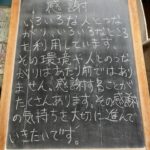 感謝
いろいろな人とつな
がり、いろいろなところ
を利用しています。
その環境や人とのつな
がりはあたり前ではあ
りません。感謝することが
たくさんあります。その感謝
の気持ちを大切に進んで
いきたいです。